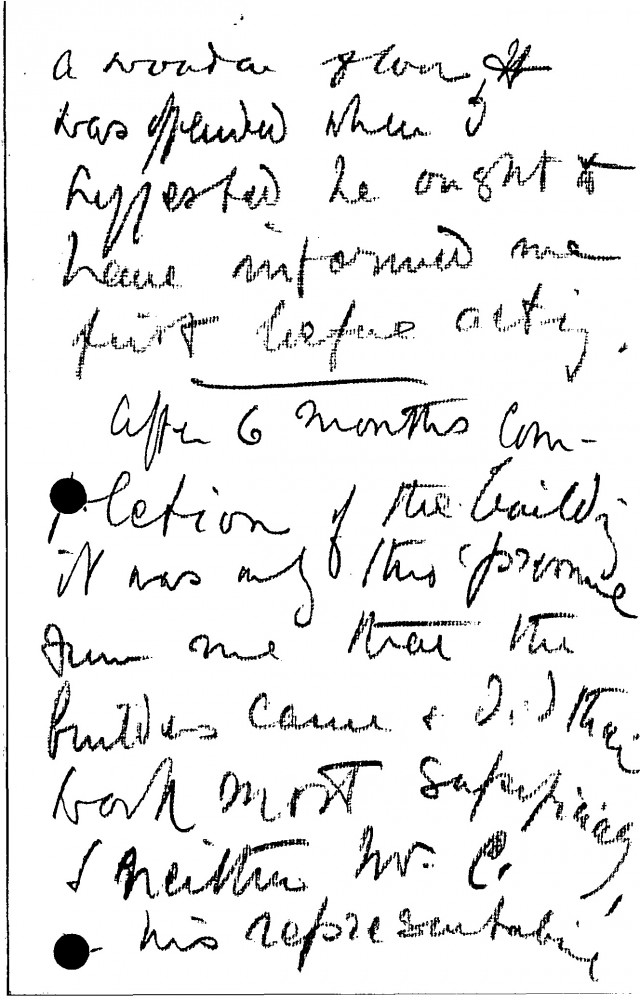 a wooden floor. He
was offended when I
suggested he ought to
have informed me
first before acting.
After 6 months com-
pletion of the building
it was only this promise
from me that the
builders came & did their
work most
& neither Mr. C.
his representative